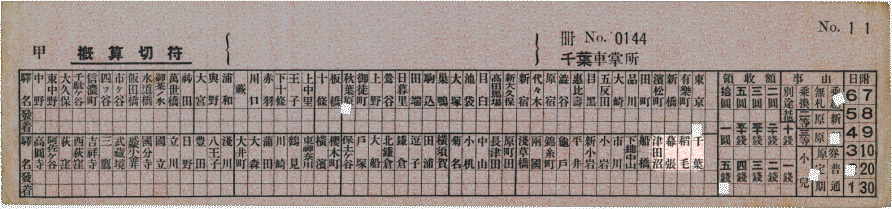 No. 11
甲 概算切符
冊 No. 0144
千葉車掌所
驛名 中野 東中野 大久保 千駄ヶ谷 信濃町 四ツ谷 市ヶ谷 飯田橋 水道橋 御茶ノ水 萬世橋 神田 大宮 與野 浦和 蕨 川口 赤羽 下十條 王子 上中里 十條 板橋 秋葉原 御徒町 上野 鶯谷 日暮里 田端 駒込 巣鴨 大塚 池袋 目白 高田馬場 新大久保 新宿 代々木 原宿 澁谷 惠比壽 目黒 五反田 大崎 品川 田町 濱松町 新橋 有樂町 東京
發着
驛名 高圓寺 阿佐ヶ谷 荻窪 西荻窪 吉祥寺 三鷹 武藏境 武藏小金井 國分寺 國立 立川 日野 豊田 八王子 淺川 大井町 大森 蒲田 川崎 鶴見 東神奈川 横濱 櫻木町 保土ヶ谷 戸塚 大船 北鎌倉 鎌倉 逗子 田浦 横須賀 菊名 小机 中山 長津田 原町田 淺草橋 兩國 錦糸町 龜戸 平井 新小岩 小岩 市川 下總中山 船橋 津田沼 幕張 稻毛 千葉
發着
領収額
拾圓 五圓 三圓 二圓
一圓 五十錢 三十錢 二十錢 十錢
五錢 四錢 三錢 二錢 一錢
事由
別途 乘換 無札 乘越
小兒 定期 普通
日附
6 7
5 8
4 9
3 10
2 20
1 30